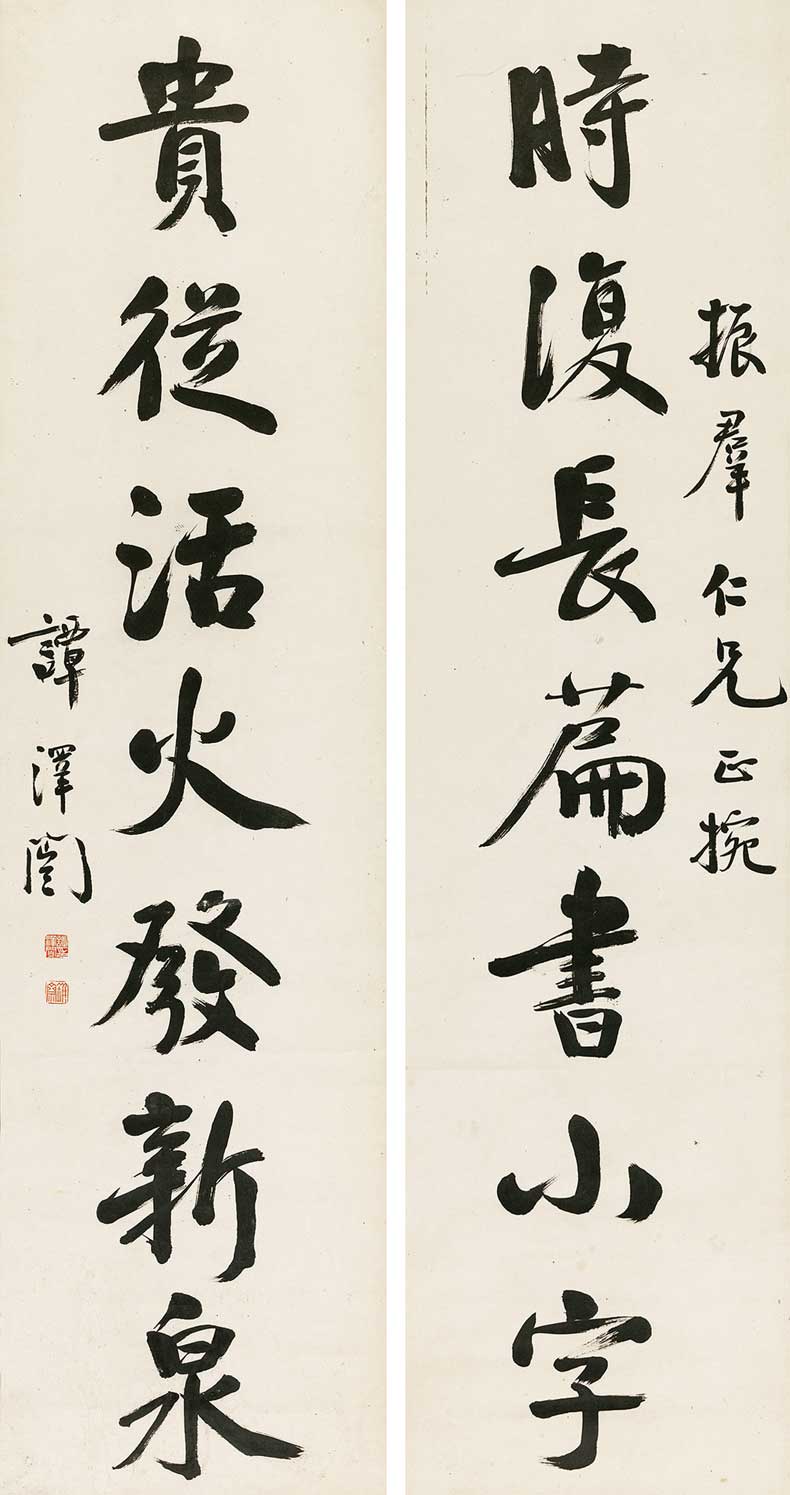 振羣仁兄正捥
時復長篇書小字
貴從活火發新泉
譚澤闓